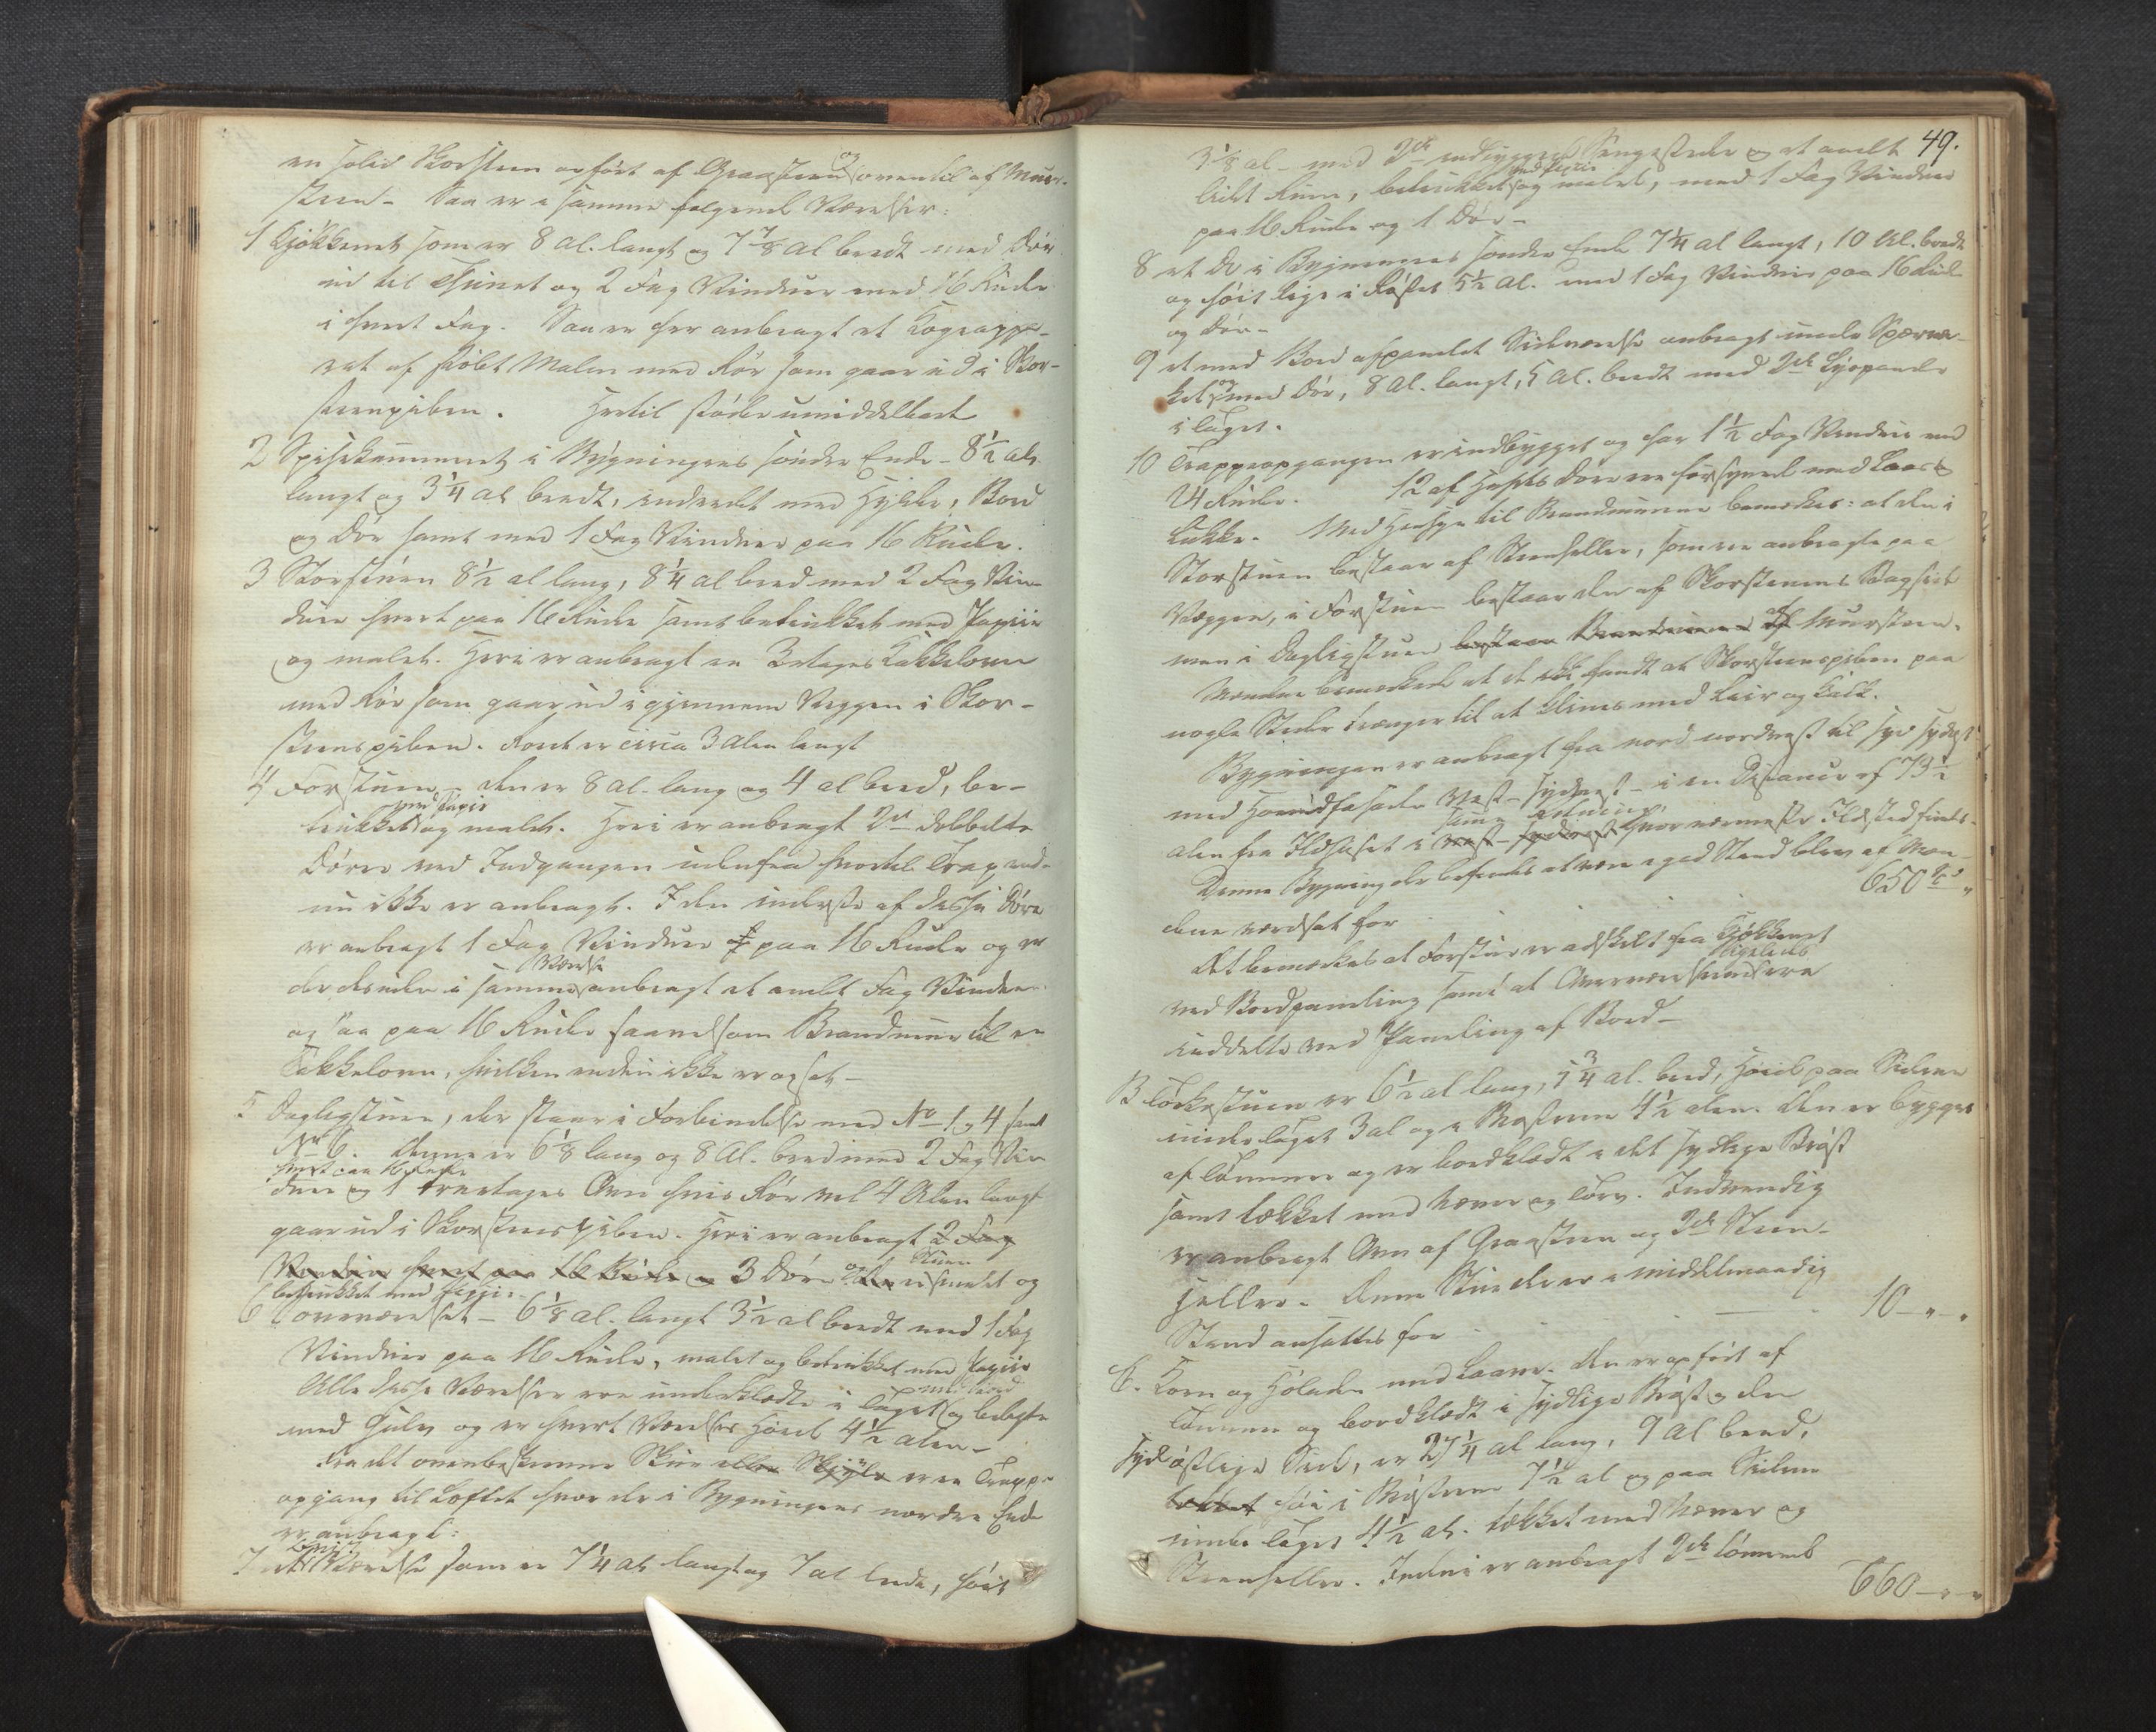 en solid Skorsteen opført af Graasteen og oventil af Muur-
steen - Saa er i samme følgende Værelser:
1 Kjøkkenet som er 8 al. langt og 7 7/8 al bredt med Dør
ud til Tunet og 2 Fag Vinduer med 16 Ruder
i hvert Fag. Saa er her anbragt et Kogeappa-
rat af støbt Malm med Rør som gaar ud i Skor-
steenspiben. Hertil støder umiddelbart
2 Spisekammeret i Bygningens søndre Ende - 8 1/2 al.
langt og 3 1/4 al bredt, indredet med Hylder, Bord
og Dør samt med 1 Fag Vinduer paa 16 Ruder.
3 Storstuen 8 1/2 al lang, 8 1/4 al bred med 2 Fag Vin-
duer hvert paa 16 Ruder samt betrukket med Papiir
og malet. Heri er anbragt en 3 etages Kakkelovn
med Rør som gaar ud igjennem Væggen i Skor-
steenspiben. Røret er circa 3 Alen langt
4 Forstuen - den er 8 al. lang og 4 al bred, be-
trukket med Papir og malet. Heri er anbragt 2de dobbelte
Døre ved Indgangen udenfra hvortil Trap end-
nu ikke er anbragt. I den inderste af disse Døre
er anbragt 1 Fag Vinduer paa 16 Ruder og er
der desuden i samme Værelse anbragt et andet Fag Vinduer
ogsaa paa 16 Ruder saavelsom Brandmuur til en
Kakkelovn, hvilken endnu ikke er opsat -
5 Dagligstuen, der staar i Forbindelse med No 1, 4 samt
No 6. Denne er 6 1/8 lang og 8 Al. bred med 2 Fag Vin
duer hvert paa 16 Ruder og 1 treetages Ovn hvis Rør vel 4 Alen langt
gaar ud i Skorsteenspiben. Heri er anbragt 2 Fag
Vinduer hvert paa 16 Ruder 3 Døre og Stuen er malet og
betrukket med Papir.
6 Soveværelset - 6 1/8 al. langt 3 1/2 al bredt med 1 Fag
Vinduer paa 16 Ruder, malet og betrukket med Papiir
Alle disse Værelser ere underklædte i Taget med Bord og belagte
med Gulv og er hvert Værelses Høide 4 1/2 alen -
Fra det ovenbeskrevne Skur eller Skjyle er en Trappe
opgang til Loftet hvor der i Bygningens nordre Ende
er anbragt:
7 et Værelse som er 7 1/4 al langt og 7 al bredt, høit
49.
3 1/8 al - med 2de indbyggede Sengesteder og et andet
lidet Rum, betrukket med Papir og malet, med 1 Fag Vinduer
paa 16 Ruder og 1 Dør -
8 et Do i Bygningens søndre Ende 7 1/4 al langt, 10 Al. bredt
og høit lige i Røstet 5 1/2 al. med 1 Fag Vinduer paa 16 Ruder
og Dør -
9 et med Bord afpanelet Sideværelse anbragt under Sperre-
og med Dør, 8 Al. langt, 5 Al. bredt med 2de
i Taget.
10 Trappeopgangen er indbygget og har 1 1/2 Fag Vinduer med
24 Ruder. 12 af Husets Døre ere forsynede med Laas og
Lukke. Med Hensyn til Brandmurene bemerkes: at den i
Storstuen bestaar af Steenheller, som ere anbragte paa
Væggen, i Forstuen bestaar den af Skorstenens Bagside
men i Dagligstuen bestaar Brandmuren af Mursteen.
Mændene bemærkede at de fandt at Skorsteenspiben paa
nogle Steder trænger til at klines med Leir og Kalk.
Bygningen er anbragt fra nord nordvest til syd sydøst
med Hovedfasade Vest-Sydvest - i en Distance af 73 1/2
alen fra Ildhuset i vest-sydvest hvor nærmeste Ildsted findes.
Denne Bygning der befindes at være i god Stand blev af Mæn-
dene værdsat for . . . . 650 Spd "
Det bemærkes at Forstuen er adskilt fra Kjøkkenet
ved Bordpaneling samt at Overværelserne ligeledes ere
inddelte ved Paneling af Bord -
B Torkestuen er 6 1/2 al lang, 5 3/4 al. bred, Høide paa Siderne
under Taget 3 al og i Røsterne 4 1/2 alen. Den er bygget
af Tømmer og er bordklædt i det sydlige Røst
samt tækket med Næver og Torv. Indvendig
er anbragt Ovn af Graasteen og 2de Steen-
heller. Denne Stue der er i middelmaadig
Stand ansattes for . . . 10 - " - "
C. Korn og Hølade med Laave. Den er opført af
Tømmer og bordklædt i sydlige Røst og den
sydøstlige Side, er 27 1/4 al lang, 9 al bred,
høi i Røsterne 7 1/2 al og paa Siderne
under Taget 4 1/2 al. tækket med Næver og
Steenheller. Indeni er anbragt 2de tømrede
660 - " - "